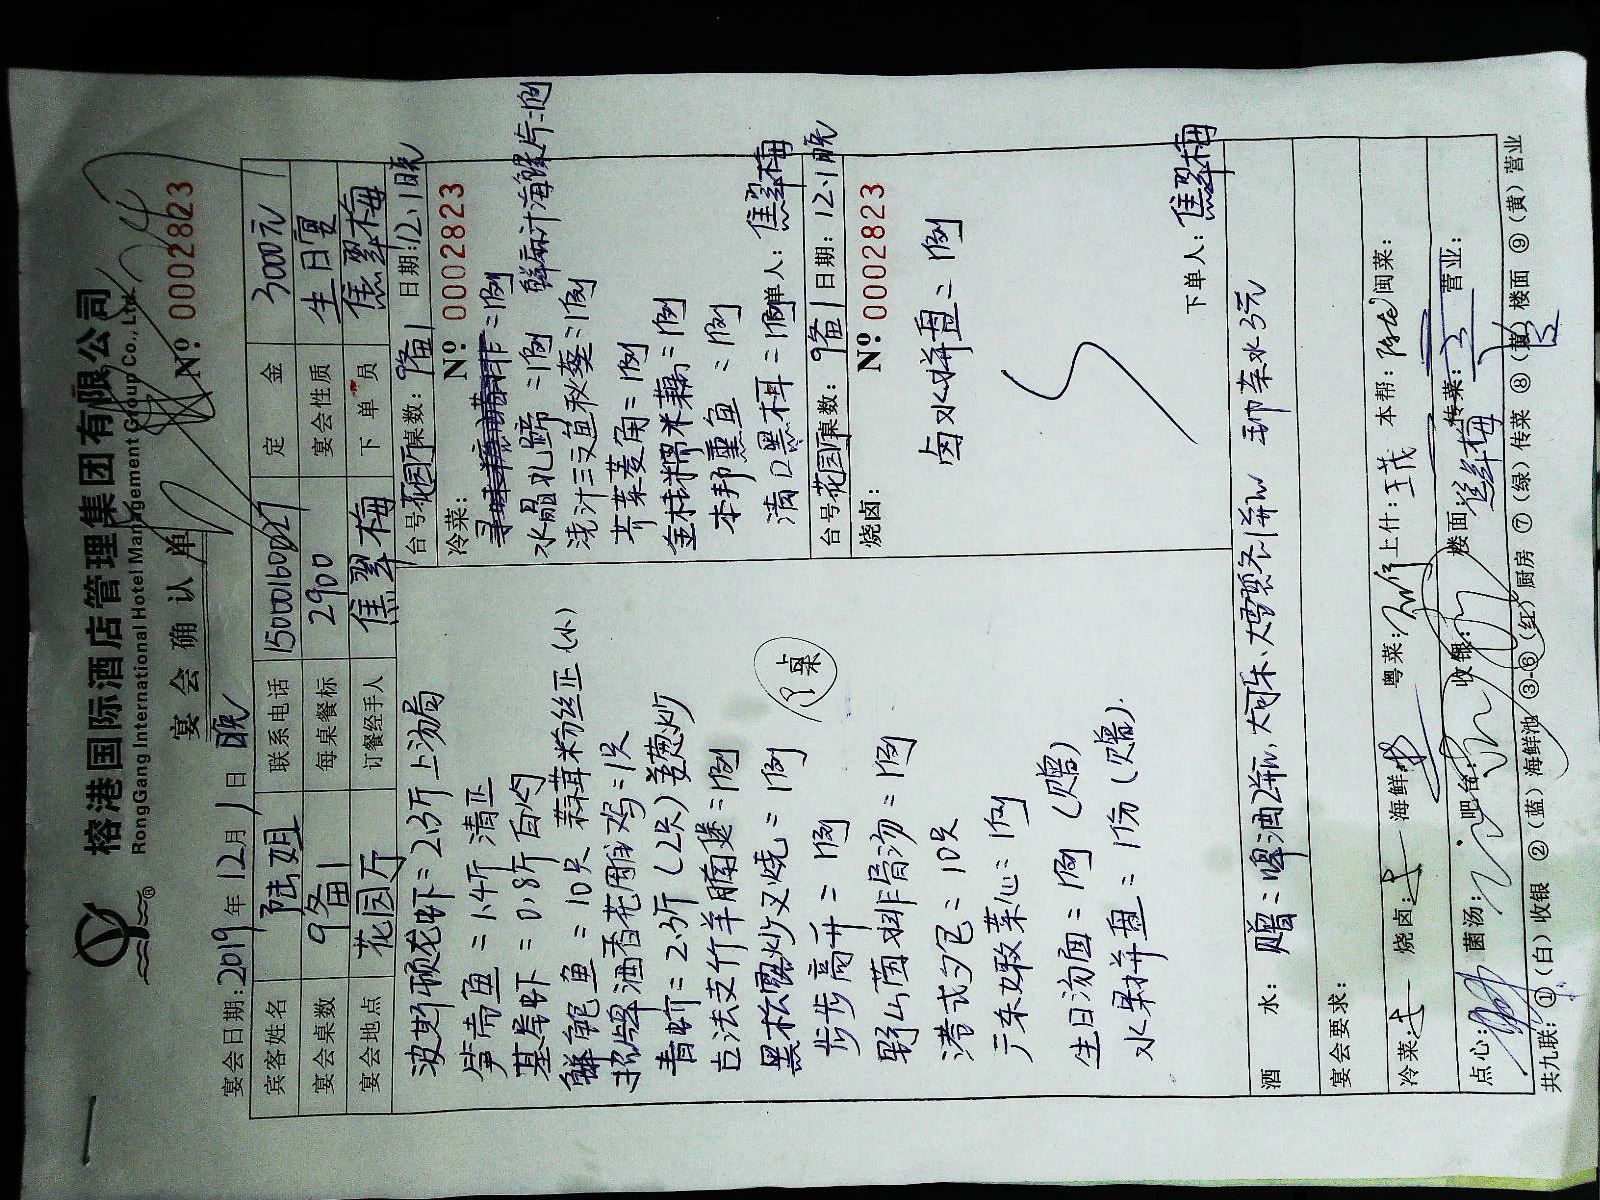 榕港国际酒店管理集团有限公司
RongGang International Hotel Management Group Co., Ltd
宴会确认单
№ 0002823
宴会日期:2019年12月1日晚
宾客姓名 陆姐 联系电话 15000160027 定金 3000元
宴会桌数 9备1 每桌餐标 2900 宴会性质 生日宴
宴会地点 花园厅 订餐经手人 焦翠梅 下单员 焦翠梅
波斯顿龙虾=2.3斤上汤焗
笋壳鱼=1.4斤清蒸
基尾虾=0.8斤白灼
鲜鲍鱼=10只 蒜茸粉丝蒸(小)
招牌酒香花雕鸡=1只
青蟹=2.3斤(2只)姜葱炒
古法支竹羊腩煲=1例
黑松露炒叉烧=1例
步步高升=1例
野山菌排骨汤=1例
港式包=10只
广东嫩菜心=1例
生日汤面=1例(赠)
水果拼盘=1份(赠)
台号:花园厅 桌数:9备1 日期:12.1晚
冷菜: № 0002823
水晶肴蹄=1例 鲜麻汁海螺片=1例
浇汁三文鱼秋葵=1例
芥菜菱角=1例
金桂糯米藕=1例
本邦熏鱼=1例
清口黑木耳=1例 下单人:焦翠梅
台号:花园厅 桌数:9备1 日期:12.1晚
烧卤: № 0002823
卤水拼盘=1例
下单人:焦翠梅
酒水: 赠:啤酒2箱、大可乐、大雪碧各1箱 自带茶水3元
宴会要求:
冷菜: 烧卤: 海鲜: 粤菜: 上什: 本帮: 闽菜:
点心: 菌汤: 吧台: 收银: 楼面:焦翠梅 传菜: 营业:
共九联:①(白)收银 ②(蓝)海鲜池 ③-⑥(红)厨房 ⑦(绿)传菜 ⑧(黄)楼面 ⑨(黄)营业